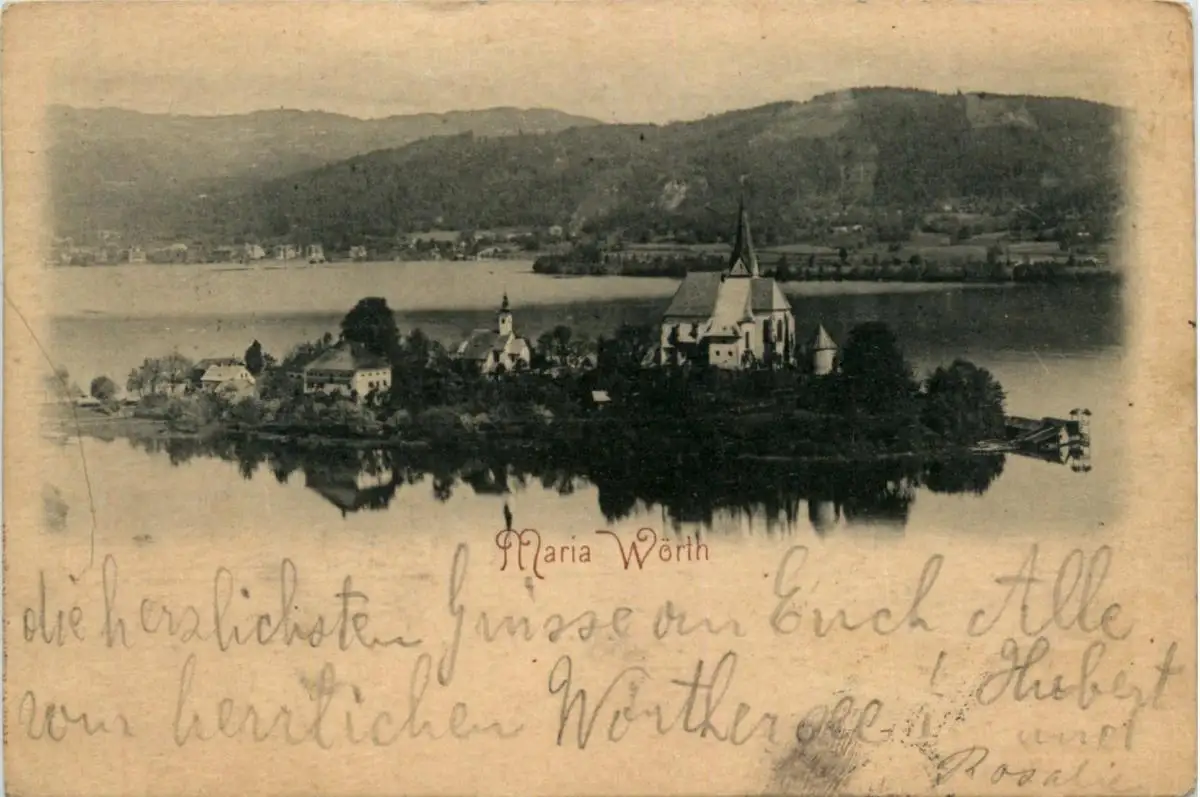 Maria Wörth
die herzlichsten Grüsse an Euch Alle
vom herrlichen Wörthersee! Hubert
und
Rosalie